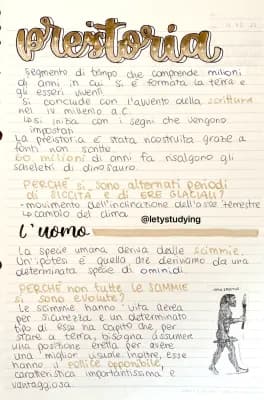 preistoria
segmento di tempo che comprende milioni
di anni in cui si è formata la terra e
gli esseri viventi.
si conclude con l'avvento della scrittura
nel IV millennio a.C.
↳ si inizia con i segni che vengono
impostati
La preistoria è stata ricostruita grazie a
fonti non scritte
60 milioni di anni fa risalgono gli
scheletri di dinosauro.
PERCHÉ si sono alternati periodi
di SICCITÀ e di ERE GLACIALI?
-movimento dell'inclinazione dell'asse terrestre
↳ cambio del clima
@letystudying
L'uomo
La specie umana deriva dalle scimmie.
Un'ipotesi è quella che deriviamo da una
determinata specie di ominidi.
PERCHÉ non tutte le SCIMMIE
si sono evolute?
Le scimmie hanno vita aerea
per sicurezza e un determinato
tipo di esse ha capito che per
stare a terra, bisogna assumere
una posizione eretta per avere
una miglior visuale. Inoltre, esse
hanno il pollice opponibile,
caratteristica importantissima e
vantaggiosa.